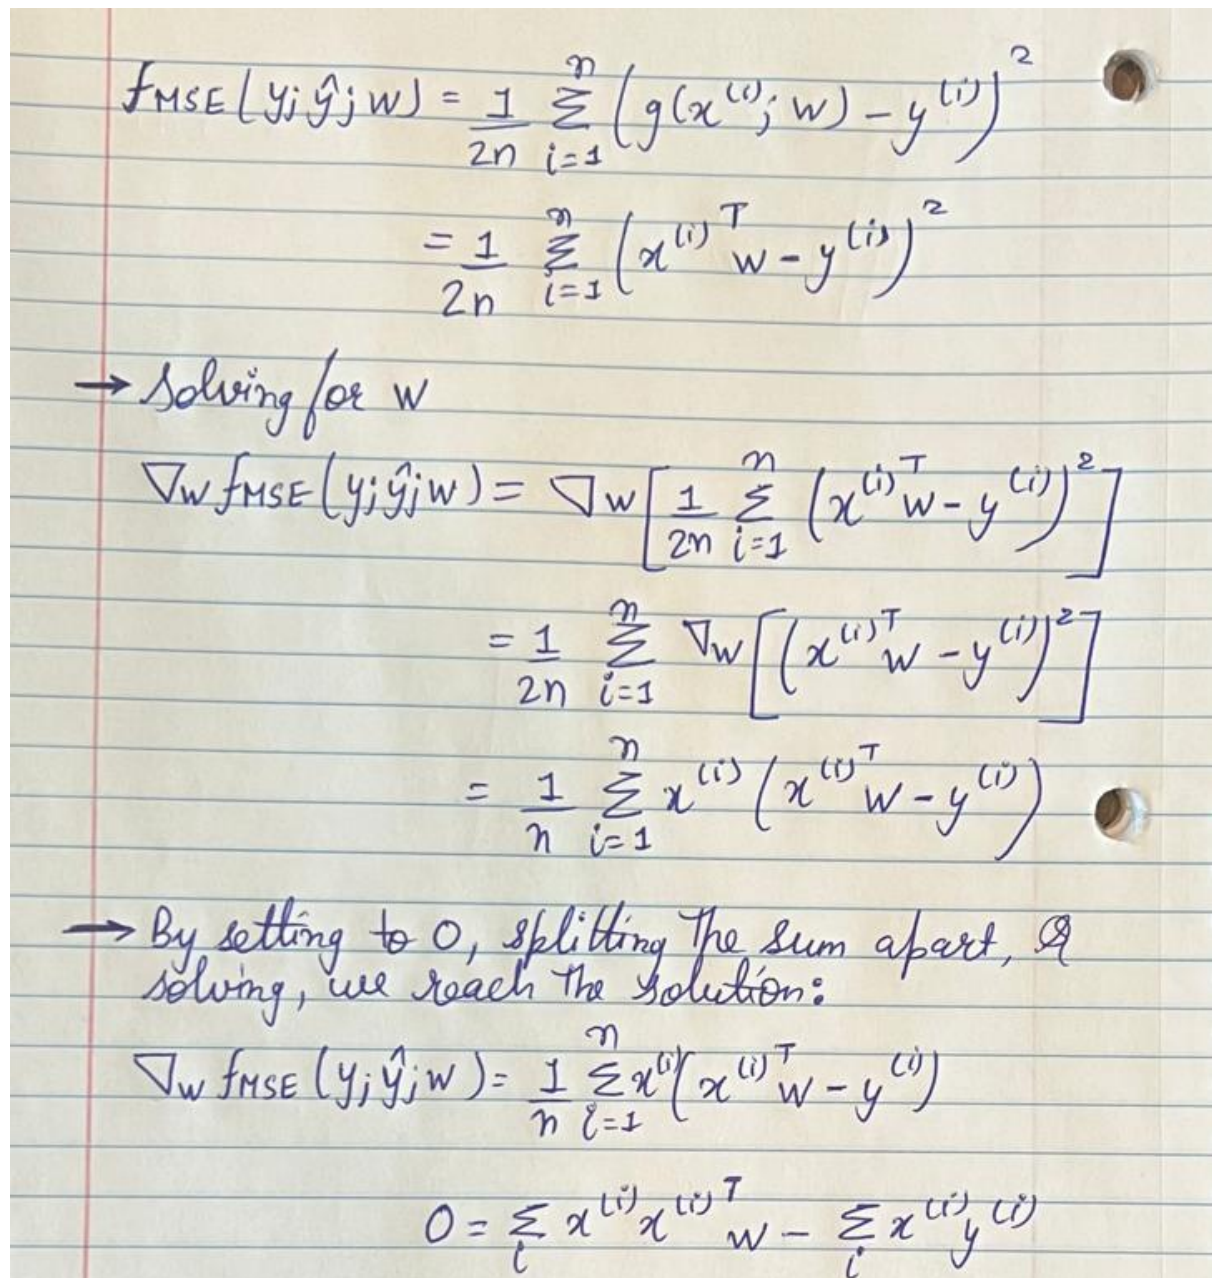 fMSE(y; ŷ; w) = 1/2n Σ_{i=1}^{n} (g(x^(i); w) − y^(i))^2
= 1/2n Σ_{i=1}^{n} (x^(i)^T w − y^(i))^2
→ Solving for w
∇w fMSE(y; ŷ; w) = ∇w [1/2n Σ_{i=1}^{n} (x^(i)^T w − y^(i))^2]
= 1/2n Σ_{i=1}^{n} ∇w [(x^(i)^T w − y^(i))^2]
= 1/n Σ_{i=1}^{n} x^(i) (x^(i)^T w − y^(i))
→ By setting to 0, splitting the sum apart, &
solving, we reach the solution:
∇w fMSE(y; ŷ; w) = 1/n Σ_{i=1}^{n} x^(i) (x^(i)^T w − y^(i))
0 = Σ_i x^(i) x^(i)^T w − Σ_i x^(i) y^(i)